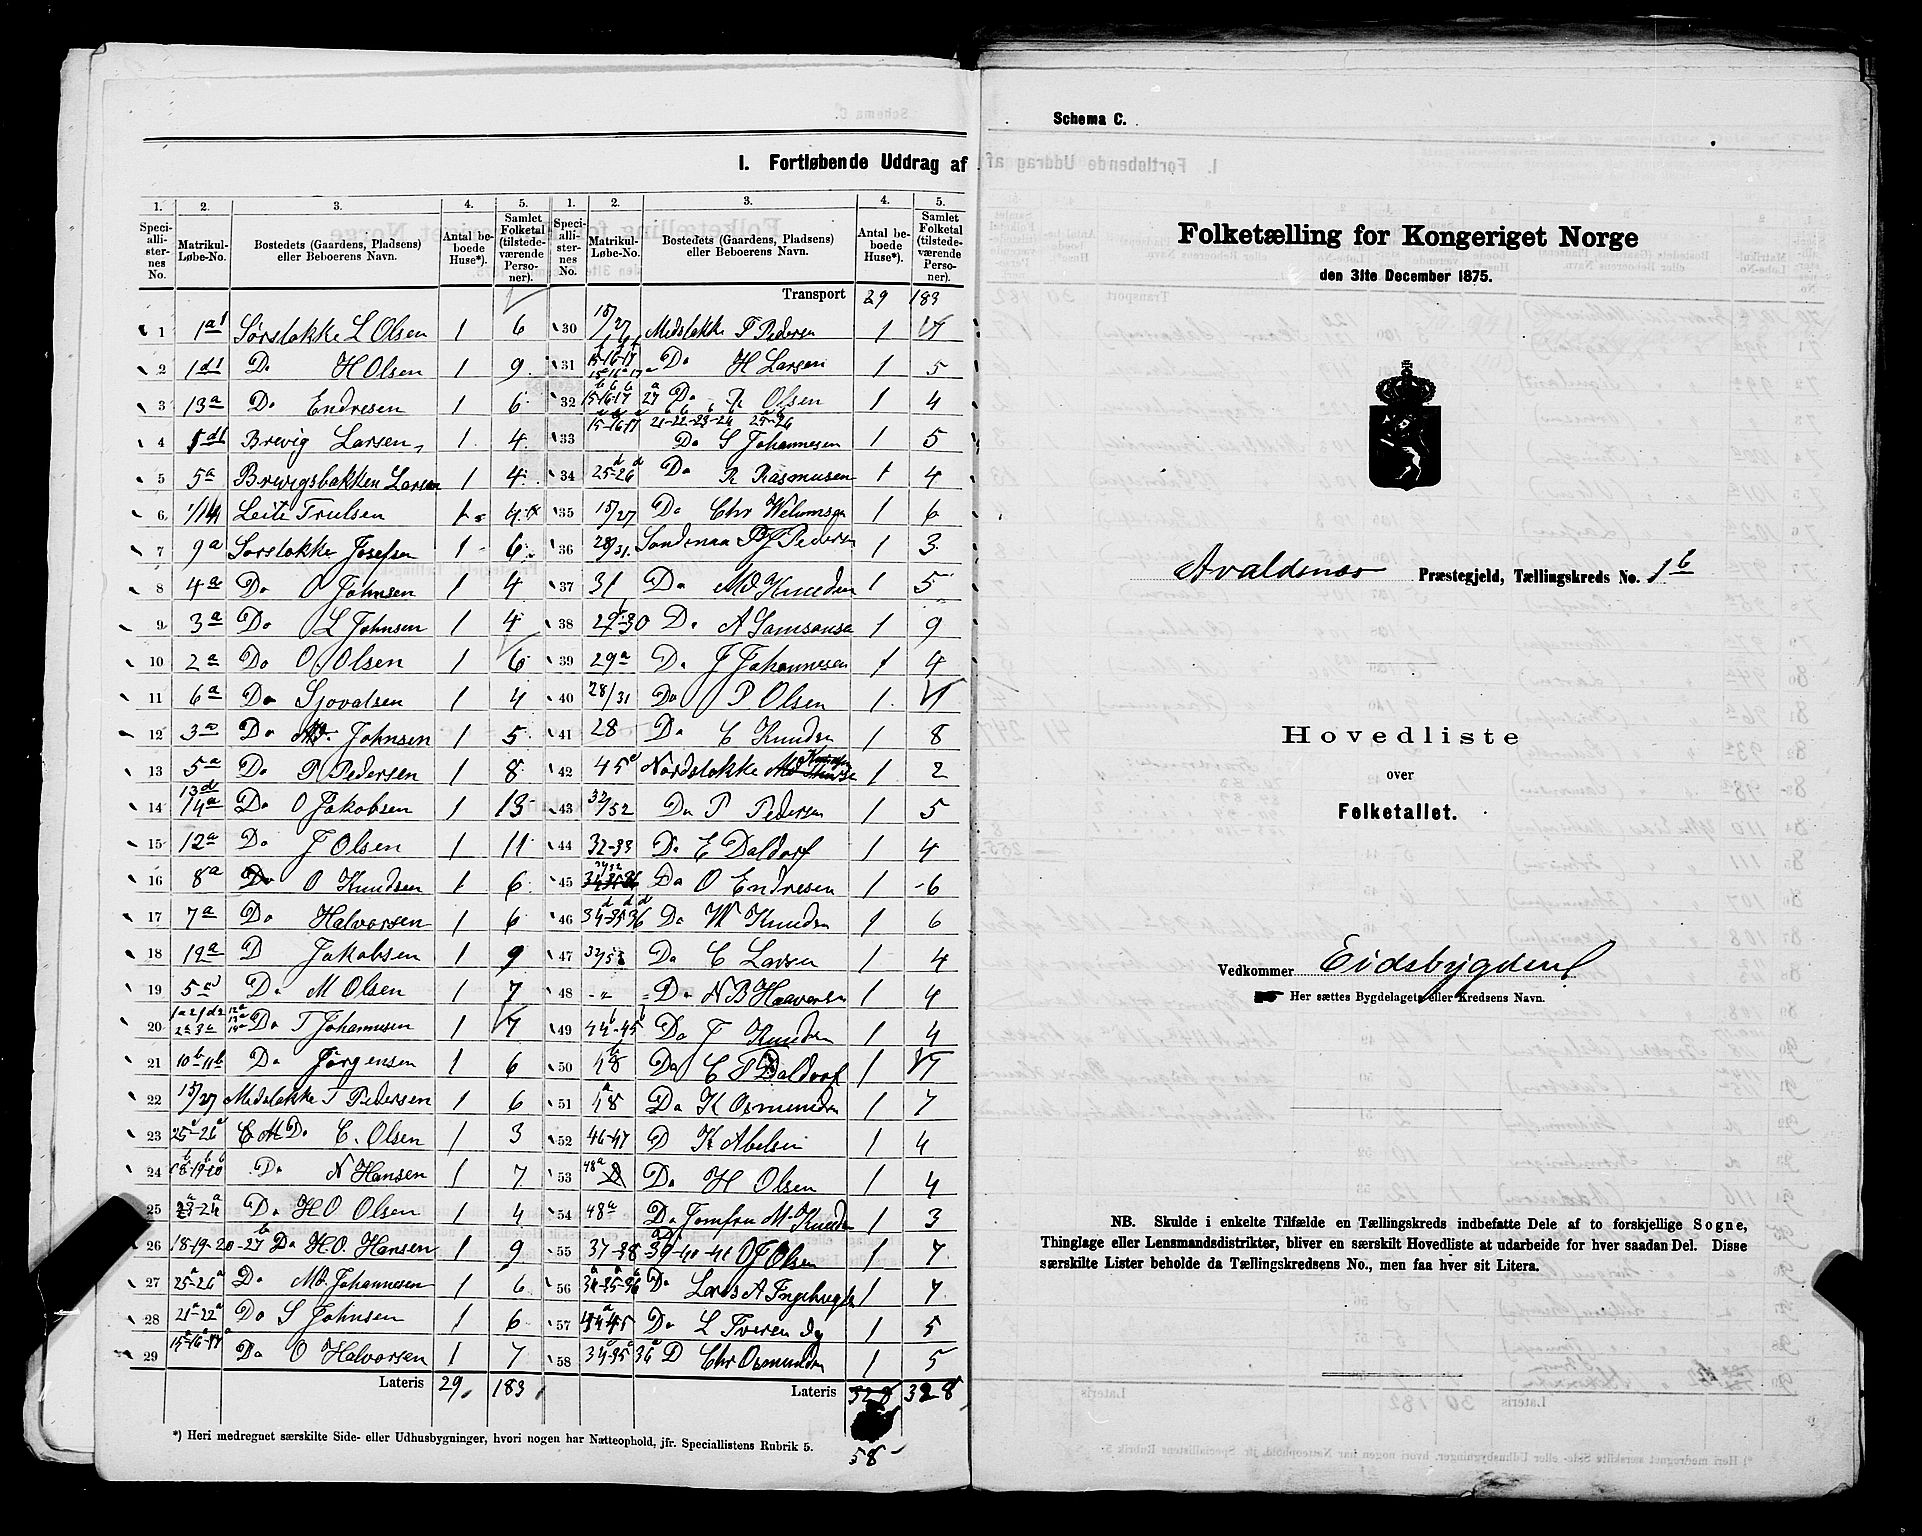 Schema C.
I. Fortløbende Uddrag af
1. 2. 3. 4. 5. 1. 2. 3. 4. 5.
Speciallisternes No. Matrikul-Løbe-No. Bostedets (Gaardens, Pladsens) eller Beboerens Navn. Antal beboede Huse*). Samlet Folketal (tilstedeværende Personer). Speciallisternes No. Matrikul-Løbe-No. Bostedets (Gaardens, Pladsens) eller Beboerens Navn. Antal beboede Huse*). Samlet Folketal (tilstedeværende Personer).
Transport 29 183
1 1a1 Sørstokke L Olsen 1 6
2 1d1 Do H Olsen 1 9
3 13a Do Endresen 1 6
4 1d1 Brevig Larsen 1 4
5 5a Brevigsbakken Larsen 1 4
6 1/14 Leite Trulsen 1 4
7 9a Sørstokke Josefsen 1 6
8 4a Do O Johnsen 1 4
9 3a Do L Johnsen 1 4
10 2a Do O. Olsen 1 6
11 6a Do Sjovatsen 1 4
12 3a Do Johnsen 1 5
13 5a Do P Pedersen 1 8
14 13d 14a Do O Jakobsen 1 13
15 12a Do J Olsen 1 11
16 8a Do O Knudsen 1 6
17 7a Do Halvorsen 1 6
18 12a D Jakobsen 1 9
19 5d Do M Olsen 1 7
20 Do T Johannesen 1 7
21 10b-11b Do Jørgensen 1 6
22 15/27 Medstokke T Pedersen 1 6
23 25-26 Do C. Olsen 1 3
24 18-19-20 Do N Hansen 1 7
25 23-24 Do H O Olsen 1 4
26 18-19-20-27 Do H O. Hansen 1 9
27 25a-26a Do Md Johannesen 1 6
28 21a-22a Do S Johnsen 1 6
29 15-16-17 Do O Halvorsen 1 7
Lateris 29 183
30 15/27 Medstokke T Pedersen 1 7
31 15-16-17 Do H Larsen 1 5
32 15-16-17 27 Do R Olsen 1 4
33 15-16-17 21-22-23-24 25-26 Do S Johannesen 1 5
34 25d-26d Do R Rasmusen 1 4
35 15/27 Do Chr Welumsen 1 6
36 28/31 Sandmaa Pedersen 1 3
37 31 Do Md Knudsen 1 5
38 29-30 Do A Samsonse 1 9
39 29a Do J Johannesen 1 4
40 28/31 Do P Olsen 1 7
41 28 Do C Knudsen 1 8
42 45 Nordstokke Md Knudsen 1 2
43 32/52 Do P Pedersen 1 5
44 32-33 Do E Daldorf 1 4
45 Do O Endresen 1 6
46 34-35-36 Do W Knudsen 1 6
47 Do C Larsen 1 4
48 -„- Do N B Halvorsen 1 4
49 44-45 Do J Knudsen 1 4
50 48 Do C T Daldorf 1 7
51 48a Do K Osmundsen 1 7
52 46-47 D K Abelsen 1 4
53 48a Do H Olsen 1 4
54 48a Do Jomfru M Knudsen 1 3
55 37-38 39-40-41 O J Olsen 1 7
56 34-35-36 Do Lars A Ingebrigts 1 7
57 44-45 Do L Tveren 1 5
58 34-35 36 D Chr Osmundsen 1 5
Lateris 328 328
58
*) Heri medregnet særskilte Side- eller Udhusbygninger, hvori nogen har Natteophold, jfr. Speciallistens Rubrik 5.
Schema C.
Folketælling for Kongeriget Norge
den 31te December 1875.
Avaldsnæs Præstegjeld, Tællingskreds No. 1b
Hovedliste
over
Folketallet.
Vedkommer Eidsbygden
Her sættes Bygdelagets eller Kredsens Navn.
NB. Skulde i enkelte Tilfælde en Tællingskreds indbefatte Dele af to forskjellige Sogne,
Thinglage eller Lensmandsdistrikter, bliver en særskilt Hovedliste at udarbeide for hver saadan Del. Disse
særskilte Lister beholde da Tællingskredsens No., men faa hver sit Litera.